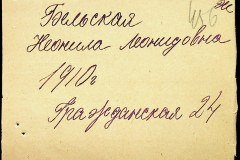 Бельская
Неонила Леонидовна
1910г
Гражданская 24